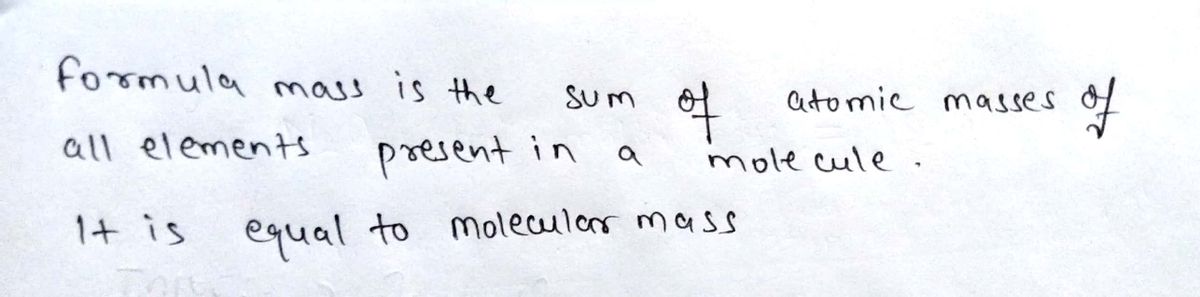 formula mass is the sum of atomic masses of
all elements present in a molecule.
It is equal to molecular mass